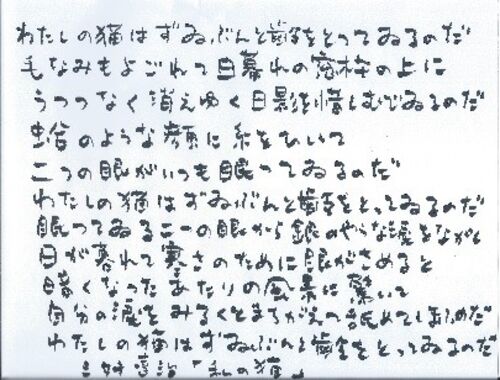 わたしの猫はずゐぶんと齢をとってゐるのだ
毛なみもよごれて日暮れの窓枠の上に
うつつなく消えゆく日影を惜しむでゐるのだ
蛤のような顔に糸をひいて
二つの眼がいつも眠ってゐるのだ
わたしの猫はずゐぶんと齢をとってゐるのだ
眠ってゐる二つの眼から銀のやうな涙をながし
日が暮れて寒さのために眼がさめると
暗くなったあたりの風景に驚いて
自分の涙をみるくとまちがえて舐めてしまふのだ
わたしの猫はずゐぶんと齢をとってゐるのだ
三好達治「私の猫」